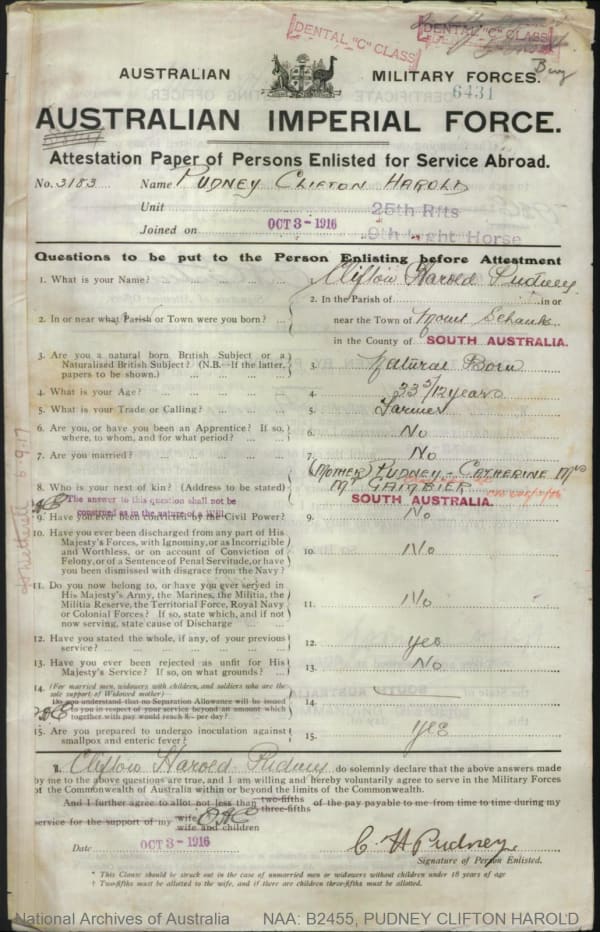 DENTAL "C" CLASS
DENTAL "C" CLASS
AUSTRALIAN MILITARY FORCES.
6431
AUSTRALIAN IMPERIAL FORCE.
Attestation Paper of Persons Enlisted for Service Abroad.
No. 3183 Name PUDNEY CLIFTON HAROLD
Unit 25th Rfts
Joined on OCT 3 - 1916 9th Light Horse
Questions to be put to the Person Enlisting before Attestment
1. What is your Name? Clifton Harold Pudney
2. In or near what Parish or Town were you born? 2. In the Parish of in or
near the Town of Mount Schank
in the County of SOUTH AUSTRALIA.
3. Are you a natural born British Subject or a
Naturalized British Subject? (N.B.—If the latter,
papers to be shown.) 3. Natural Born
4. What is your Age? 4. 33 5/12 years
5. What is your Trade or Calling? 5. Farmer
6. Are you, or have you been an Apprentice? If so,
where, to whom, and for what period? 6. No
7. Are you married? 7. No
8. Who is your next of kin? (Address to be stated) 8. (MOTHER) PUDNEY - CATHERINE MRS
MT GAMBIER
SOUTH AUSTRALIA.
The answer to this question shall not be
construed as in the nature of a Will.
9. Have you ever been convicted by the Civil Power? 9. No
10. Have you ever been discharged from any part of His
Majesty's Forces, with Ignominy, or as Incorrigible
and Worthless, or on account of Conviction of
Felony, or of a Sentence of Penal Servitude, or have
you been dismissed with disgrace from the Navy? 10. No
11. Do you now belong to, or have you ever served in
His Majesty's Army, the Marines, the Militia, the
Militia Reserve, the Territorial Force, Royal Navy
or Colonial Forces? If so, state which, and if not
now serving, state cause of Discharge 11. No
12. Have you stated the whole, if any, of your previous
service? 12. yes
13. Have you ever been rejected as unfit for His
Majesty's Service? If so, on what grounds? 13. No
14. (For married men, widowers with children, and soldiers who are the
sole support of Widowed mother)—
Do you understand that no Separation Allowance will be issued
to you in respect of your service beyond an amount which
together with pay would reach 8/- per day? 14.
15. Are you prepared to undergo inoculation against
smallpox and enteric fever? 15. yes
I, Clifton Harold Pudney do solemnly declare that the above answers made
by me to the above questions are true, and I am willing and hereby voluntarily agree to serve in the Military Forces
of the Commonwealth of Australia within or beyond the limits of the Commonwealth.
And I further agree to allot not less than two-fifths three-fifths of the pay payable to me from time to time during my
service for the support of my wife
wife and children
Date OCT 3 - 1916 C. H. Pudney
Signature of Person Enlisted.
* This Clause should be struck out in the case of unmarried men or widowers without children under 18 years of age
† Two-fifths must be allotted to the wife, and if there are children three-fifths must be allotted.
National Archives of Australia NAA: B2455, PUDNEY CLIFTON HAROLD